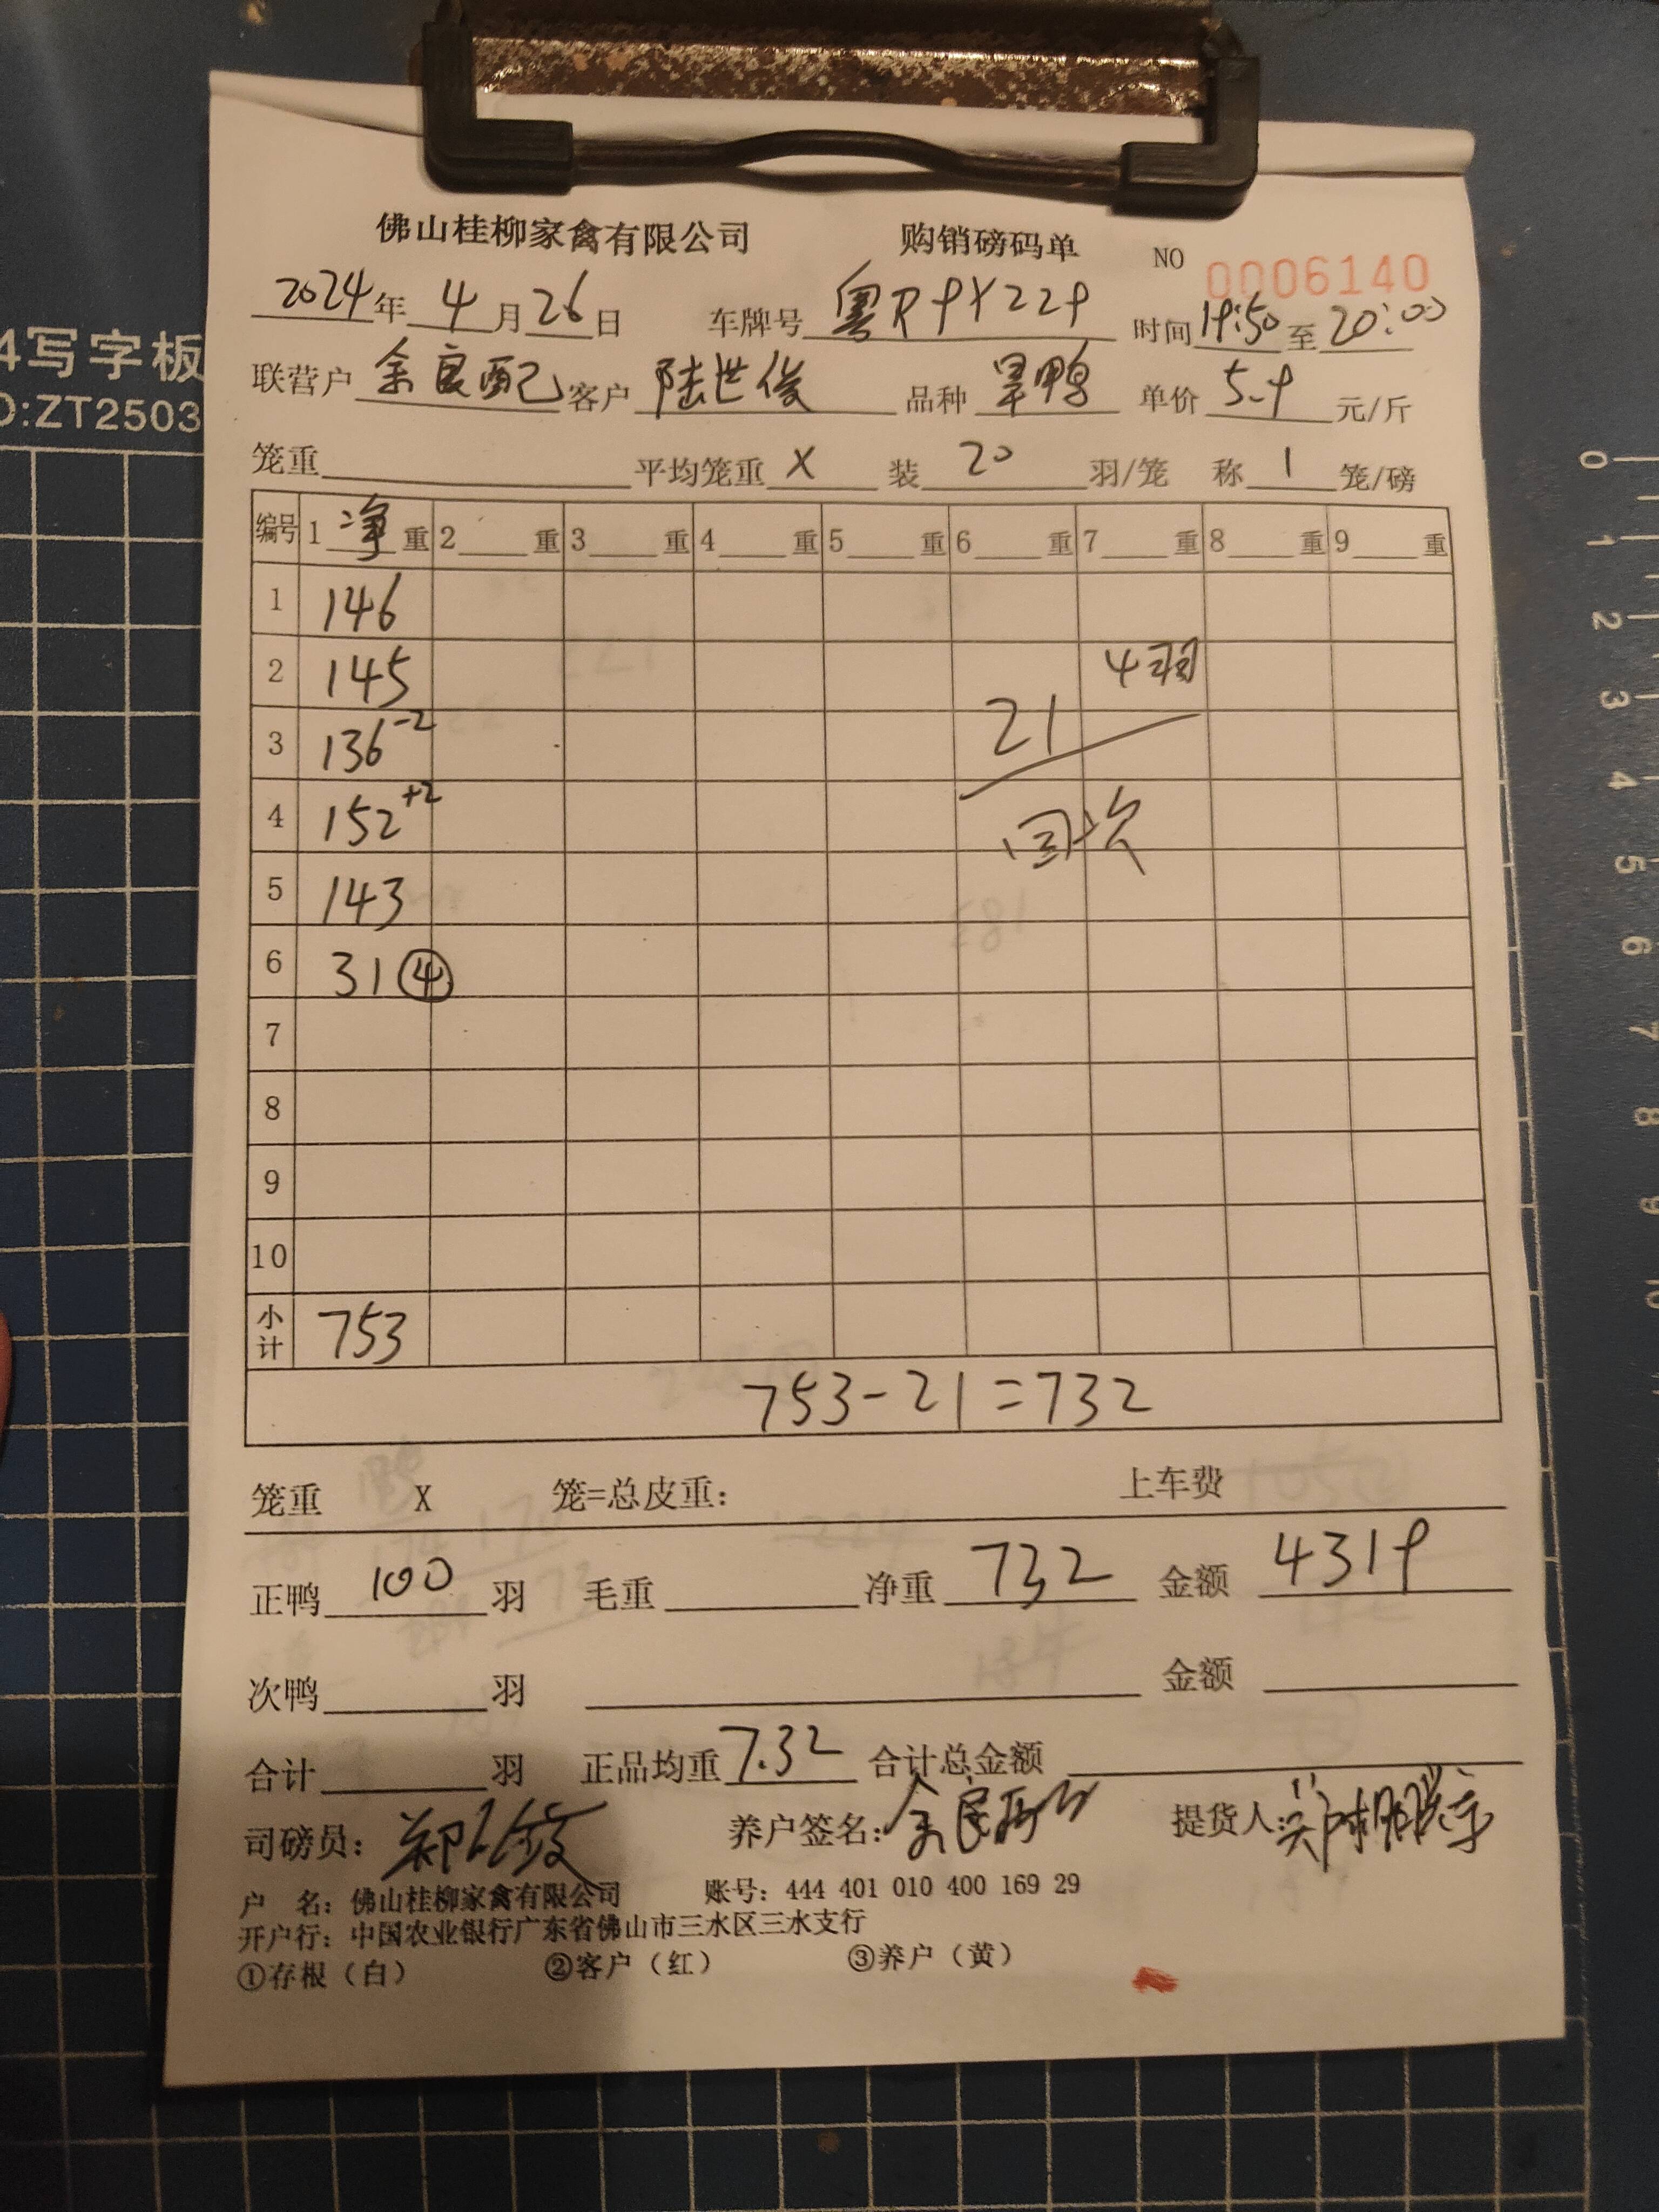 佛山桂柳家禽有限公司 购销磅码单 NO 0006140
2024年4月26日 车牌号 粤R9X229 时间19:50至20:00
联营户 余良配 客户 陆世俊 品种 旱鸭 单价 5.9 元/斤
笼重 平均笼重 X 装 20 羽/笼 称 1 笼/磅
编号 1 净 重 2 重 3 重 4 重 5 重 6 重 7 重 8 重 9 重
1 146
2 145 4羽
3 136 -2 21
4 152 +2 回次
5 143
6 31 ④
7
8
9
10
小计 753
753-21=732
笼重 X 笼=总皮重: 上车费
正鸭 100 羽 毛重 净重 732 金额 4319
次鸭 羽 金额
合计 羽 正品均重 7.32 合计总金额
司磅员: 养户签名: 余良配 提货人:
户 名: 佛山桂柳家禽有限公司 账号: 444 401 010 400 169 29
开户行: 中国农业银行广东省佛山市三水区三水支行
①存根（白） ②客户（红） ③养户（黄）
4写字板
D:ZT2503
0
1
2
3
4
5
6
7
8
9
10